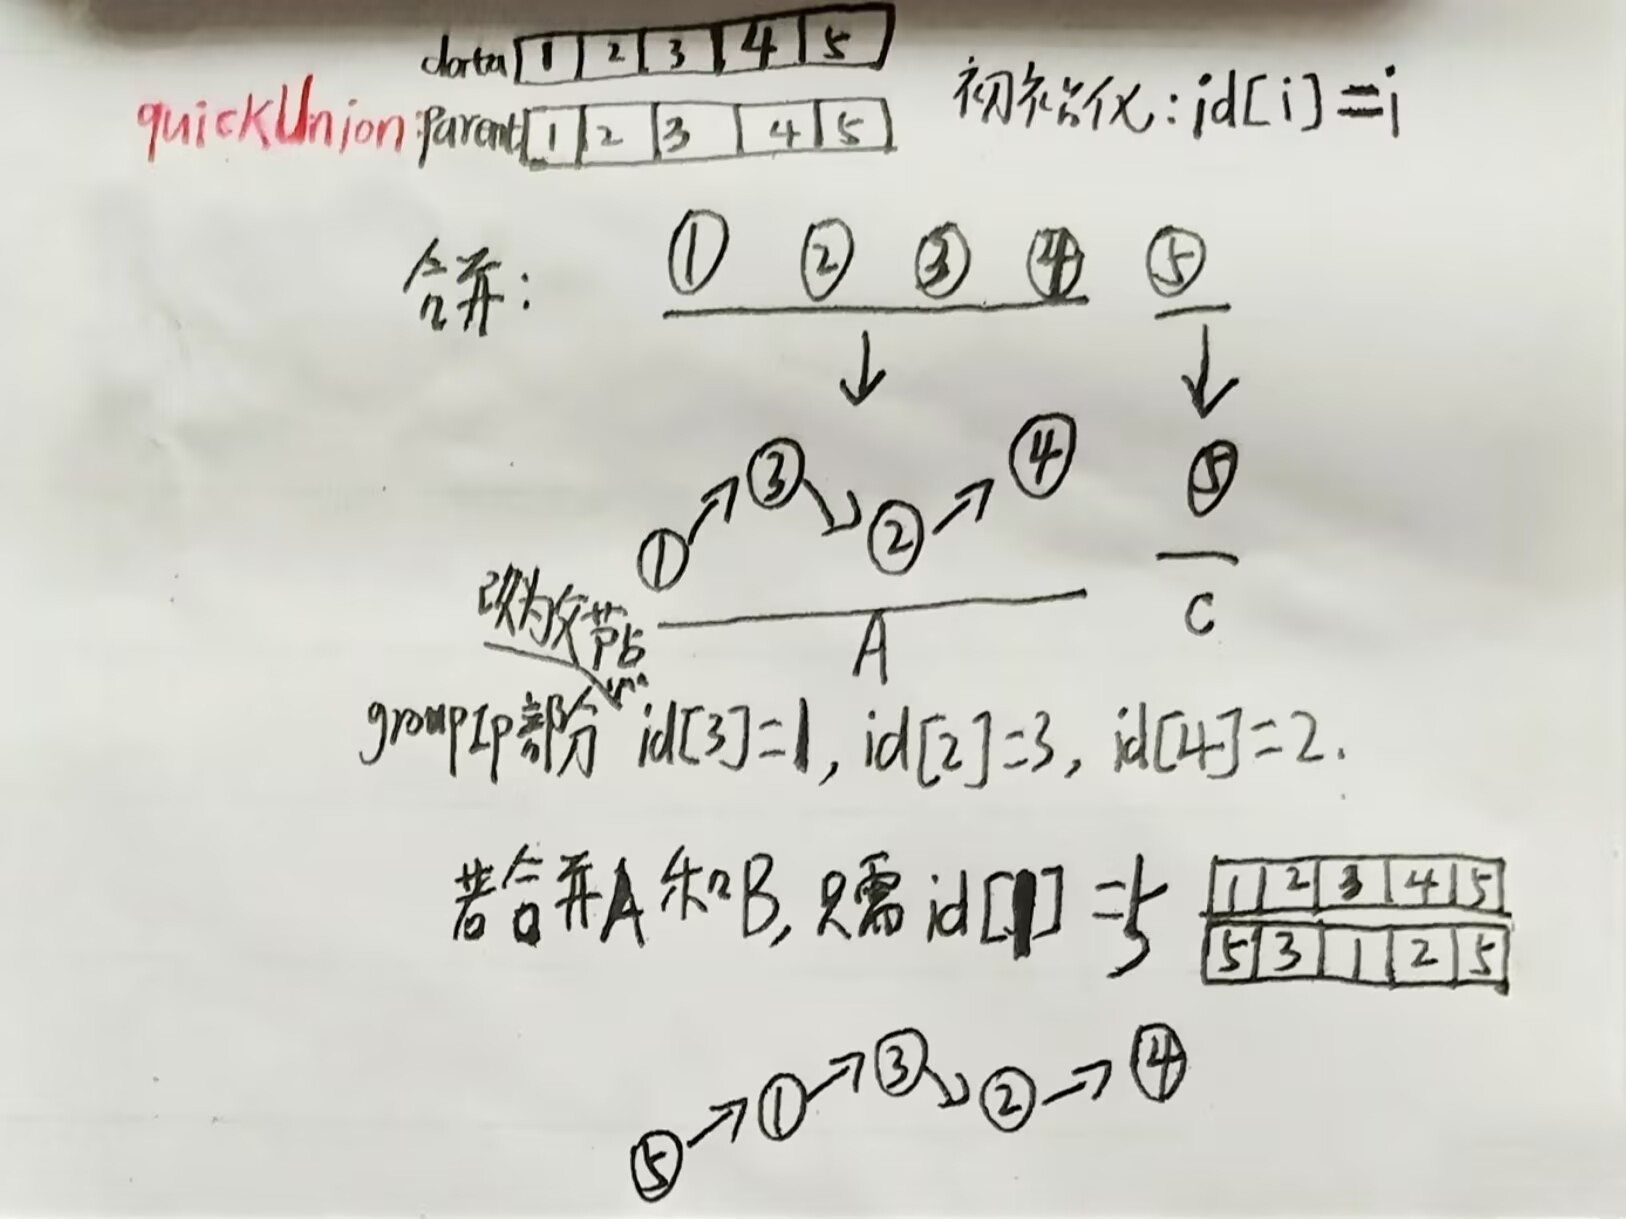 data 1 2 3 4 5
quickUnion: Parent 1 2 3 4 5 初始化: id[i]=i
合并: ① ② ③ ④ ⑤
① ③ ② ④ ⑤
A C
改为父节点
groupIp部分 id[3]=1, id[2]=3, id[4]=2.
若合并A和B, 只需id[1]=5
1 2 3 4 5
5 3 1 2 5
⑤ ① ③ ② ④